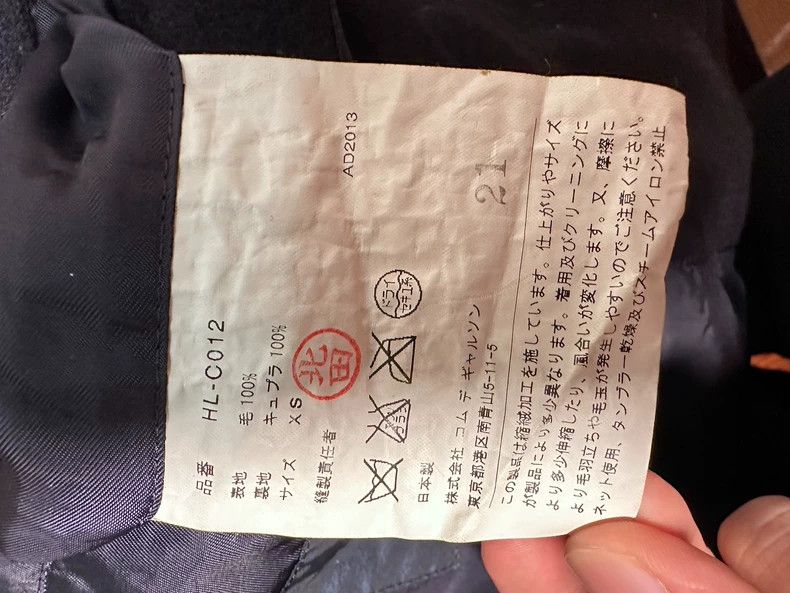 AD2013
品番 HL-C012
表地 毛100%
裏地 キュプラ100%
サイズ XS
縫製責任者 北田
ドライ
セキユ系
エンソサラシ
日本製
株式会社 コム デ ギャルソン
東京都港区南青山5-11-5
21
この製品は縮絨加工を施しています。仕上がりやサイズ
が製品により多少異なります。着用及びクリーニングに
より多少伸縮したり、風合いが変化します。又、摩擦に
より毛羽立ちや毛玉が発生しやすいのでご注意ください。
ネット使用、タンブラー乾燥及びスチームアイロン禁止